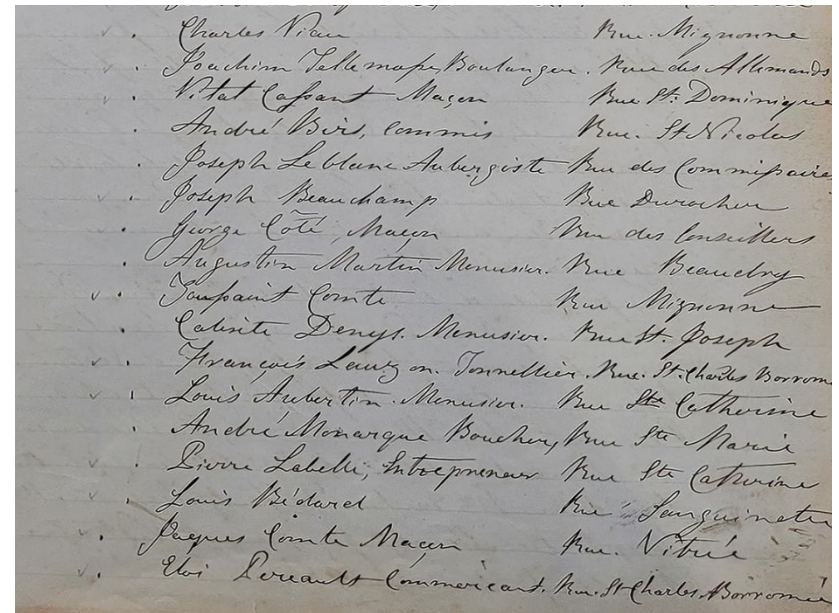 Charles Viau Rue. Mignonne
Joachim Tellemosse, Boulanger. Rue des Allemands
Vital Cassant Maçon Rue St. Dominique
André Birs, Commis Rue. St Nicolas
Joseph Leblanc Aubergiste Rue des Commissaire
Joseph Beauchamp Rue Durocher
George Côté, Maçon Rue des Conseillers
Augustin Martin Menusier. Rue Beaudry
Toussaint Comte Rue Mignonne
Calixte Denys. Menusier. Rue St. Joseph
François Lauzon. Tonnellier. Rue. St. Charles Borrome
Louis Aubertin. Menusier. Rue Ste Catherine
André Monarque Boucher, Rue Ste Marie
Pierre Labelle, Entrepreneur Rue Ste Catherine
Louis Bédard Rue Sanguinette
Jaques Comte Maçon Rue. Vitrée
Eloi Perault Commercant. Rue. St Charles Borromée